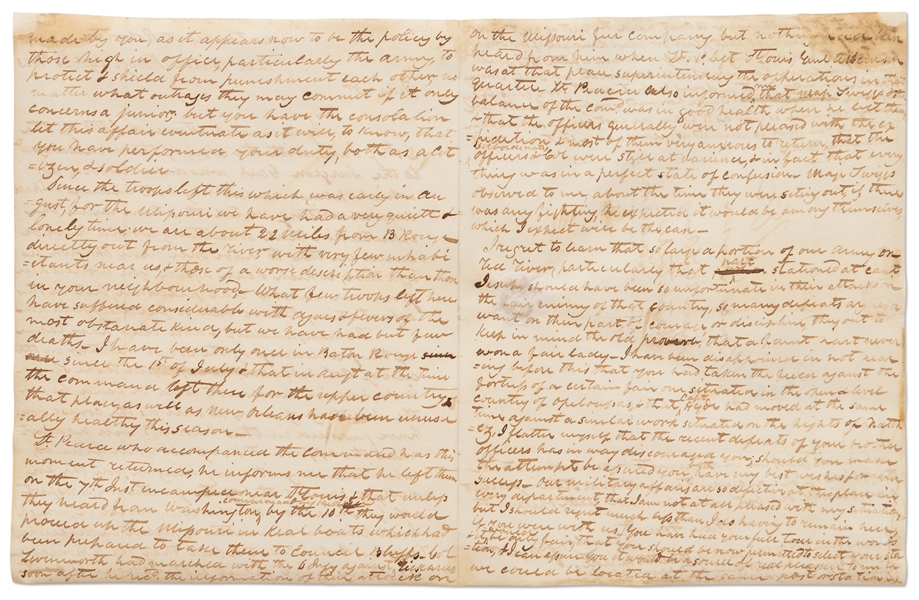 made by you, as it appears now to be the policy by
those high in office, particularly the army, to
protect & shield from punishment each other no
matter what outrages they may commit if it only
concerns a junior. but you have the consolation
let this affair eventuate as it will, to know, that
you have performed your duty, both as a cit
=izen & soldier
Since the troops left this which was early in au
=gust, for the Missouri we have had a very quiett &
lonely time we are about 22 miles from B Rouge
directly out from the river with very few inhabi
=itants near us & those of a worse description than those
in your neighbourhood - What few troops left here
have suffered considerable with agues & fevers of the
most obstanate kind, but we have had but few
deaths - I have been only once in Baton Rouge
since the 1st of July & that in augt at the time
the command left there for the upper country &
that place as well as New Orleans have been unusu
=ally healthy this season -
Lt. Pearce who accompanied the command has this
moment returned, he informs me that he left them
on the 7th Inst encamped near St Louis & that unless
they heard from Washington by the 10th they would
proceed up the Missouri in keal boats which had
been prepared to take them to Council Bluffs. Col
Leavenworth had marched with the 6 Regt against
soon after he recd. the information of their attack on
on the Missouri fur company but nothing had been
heard from him when Lt. P. left St Louis Genl Atkinson
was at that place superintending the operations in that
quarter Lt Pearce also informed, that Majr Twiggs & the
balance of the Comd. was in good health when he left them
& that the officers generally were not pleased with the ex
=pedition & most of them very anxious to return, that the
officers & Col were still at variance, & in fact that every
thing was in a perfect state of confusion Majr Twiggs
observed to me about the time they were setting out if there
was any fighting, he expected it would be among themselves
which I expect will be the case -
I regret to learn that so large a portion of our army on
Red River, particularly that part stationed at cant
Jesup should have been so unfortunate in their attacks on
the fair enemy of that country, so many defeats
want on their part of courage or discipline, they out to
keep in mind the old proverb, that a faint hart never
won a fair lady - I have been disappointed in not hear
=ing before this that you had taken the field against the
fortress of a certain fair one situated in the
country of Opelousas, & that had moved at the same
time against a similar work situated on the hights of Natch
=ez, I flatter myself that the recent defeats of your brother
officers has in no way discouraged you, should you make
the attempt be assured you both have my best wishes for your
success. Our military affairs are so defective at this place in
every department, that I am not at all pleased with my situation,
but I should regret much less than I do having to remain here
if you were with us. You have had your full tour in the woods
& it is but fair, that you should be now permitted to select your sta
=tion, & I can assure you it would be a source of real pleasure to me if
we could be located at the same post or station